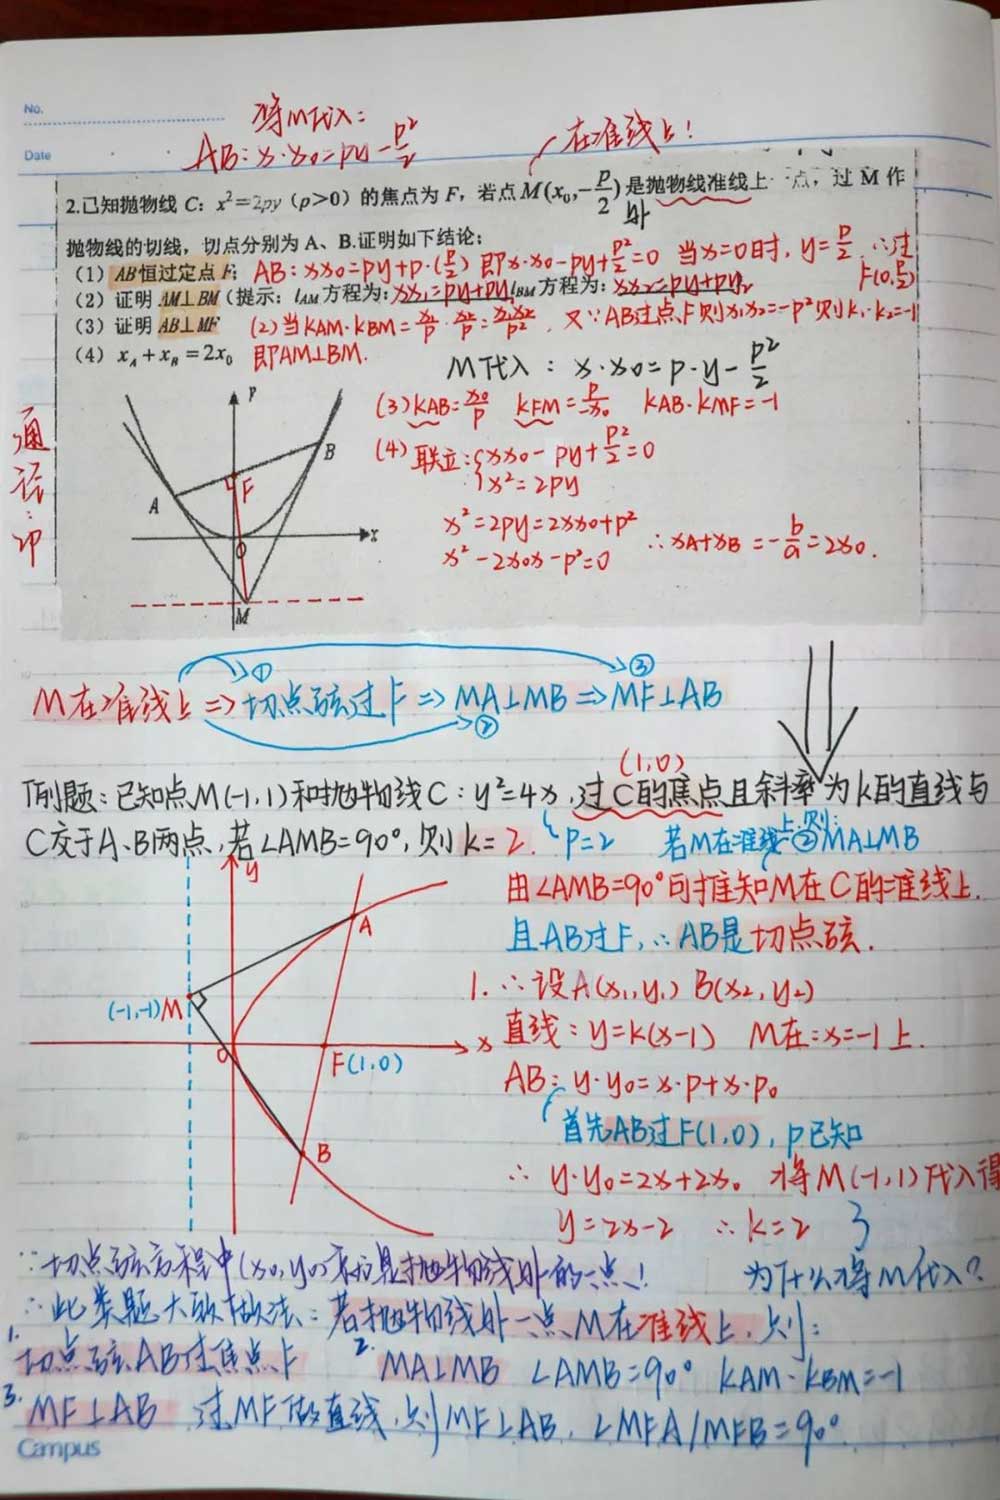 No.
Date
将M代入:
AB: x·x₀=py-p²/2
在准线上!
2.已知抛物线 C: x²=2py (p>0) 的焦点为 F, 若点 M(x₀,-p/2) 是抛物线准线上一点, 过 M 作
外
抛物线的切线, 切点分别为 A、B.证明如下结论:
(1) AB恒过定点 F; AB: xx₀=py+p·(-p/2) 即x·x₀-py+p²/2=0 当x=0时, y=p/2 ∴过F(0,p/2)
(2) 证明 AM⊥BM (提示: l_AM 方程为: xx₁=py+py₁ l_BM 方程为: xx₂=py+py₂
(3) 证明 AB⊥MF (2)当KAM·KBM=x₁/p·x₂/p=x₁x₂/p², 又∵AB过点F则x₁x₂=-p²则k₁·k₂=-1
(4) x_A+x_B=2x₀ 即AM⊥BM.
M代入: x·x₀=p·y-p²/2
(3)KAB=x₀/p KFM=p/-x₀ KAB·KMF=-1
(4)联立:{xx₀-py+p²/2=0
x²=2py
x²=2py=2xx₀+p²
x²-2x₀x-p²=0 ∴xA+xB=-b/a=2x₀.
通径:2p
y
B
A
F
O
x
M
① ③
M在准线上⇒切点弦过F⇒MA⊥MB⇒MF⊥AB
②
(1,0)
例题:已知点M(-1,1)和抛物线C:y²=4x,过C的焦点且斜率为k的直线与
C交于A、B两点,若∠AMB=90°,则k=2. p=2 若M在准线上,则②MA⊥MB
y
A
M
(-1,-1)
O
x
F(1,0)
B
由∠AMB=90°可推知M在C的准线上.
且AB过F,∴AB是切点弦.
1.∴设A(x₁,y₁) B(x₂,y₂)
直线:y=k(x-1) M在:x=-1上.
AB:y·y₀=x·p+x·p₀
首先AB过F(1,0),p已知
∴y·y₀=2x+2x₀ 将M(-1,1)代入得
y=2x-2 ∴k=2
∵切点弦方程中(x₀,y₀)表示是抛物线外的一点! 为什么将M代入?
∴此类题大致做法:若抛物线外一点M在准线上,则:
1.切点弦AB过焦点F 2.MA⊥MB ∠AMB=90° KAM·KBM=-1
3.MF⊥AB 过MF做直线,则MF⊥AB,∠MFA/MFB=90°
Campus